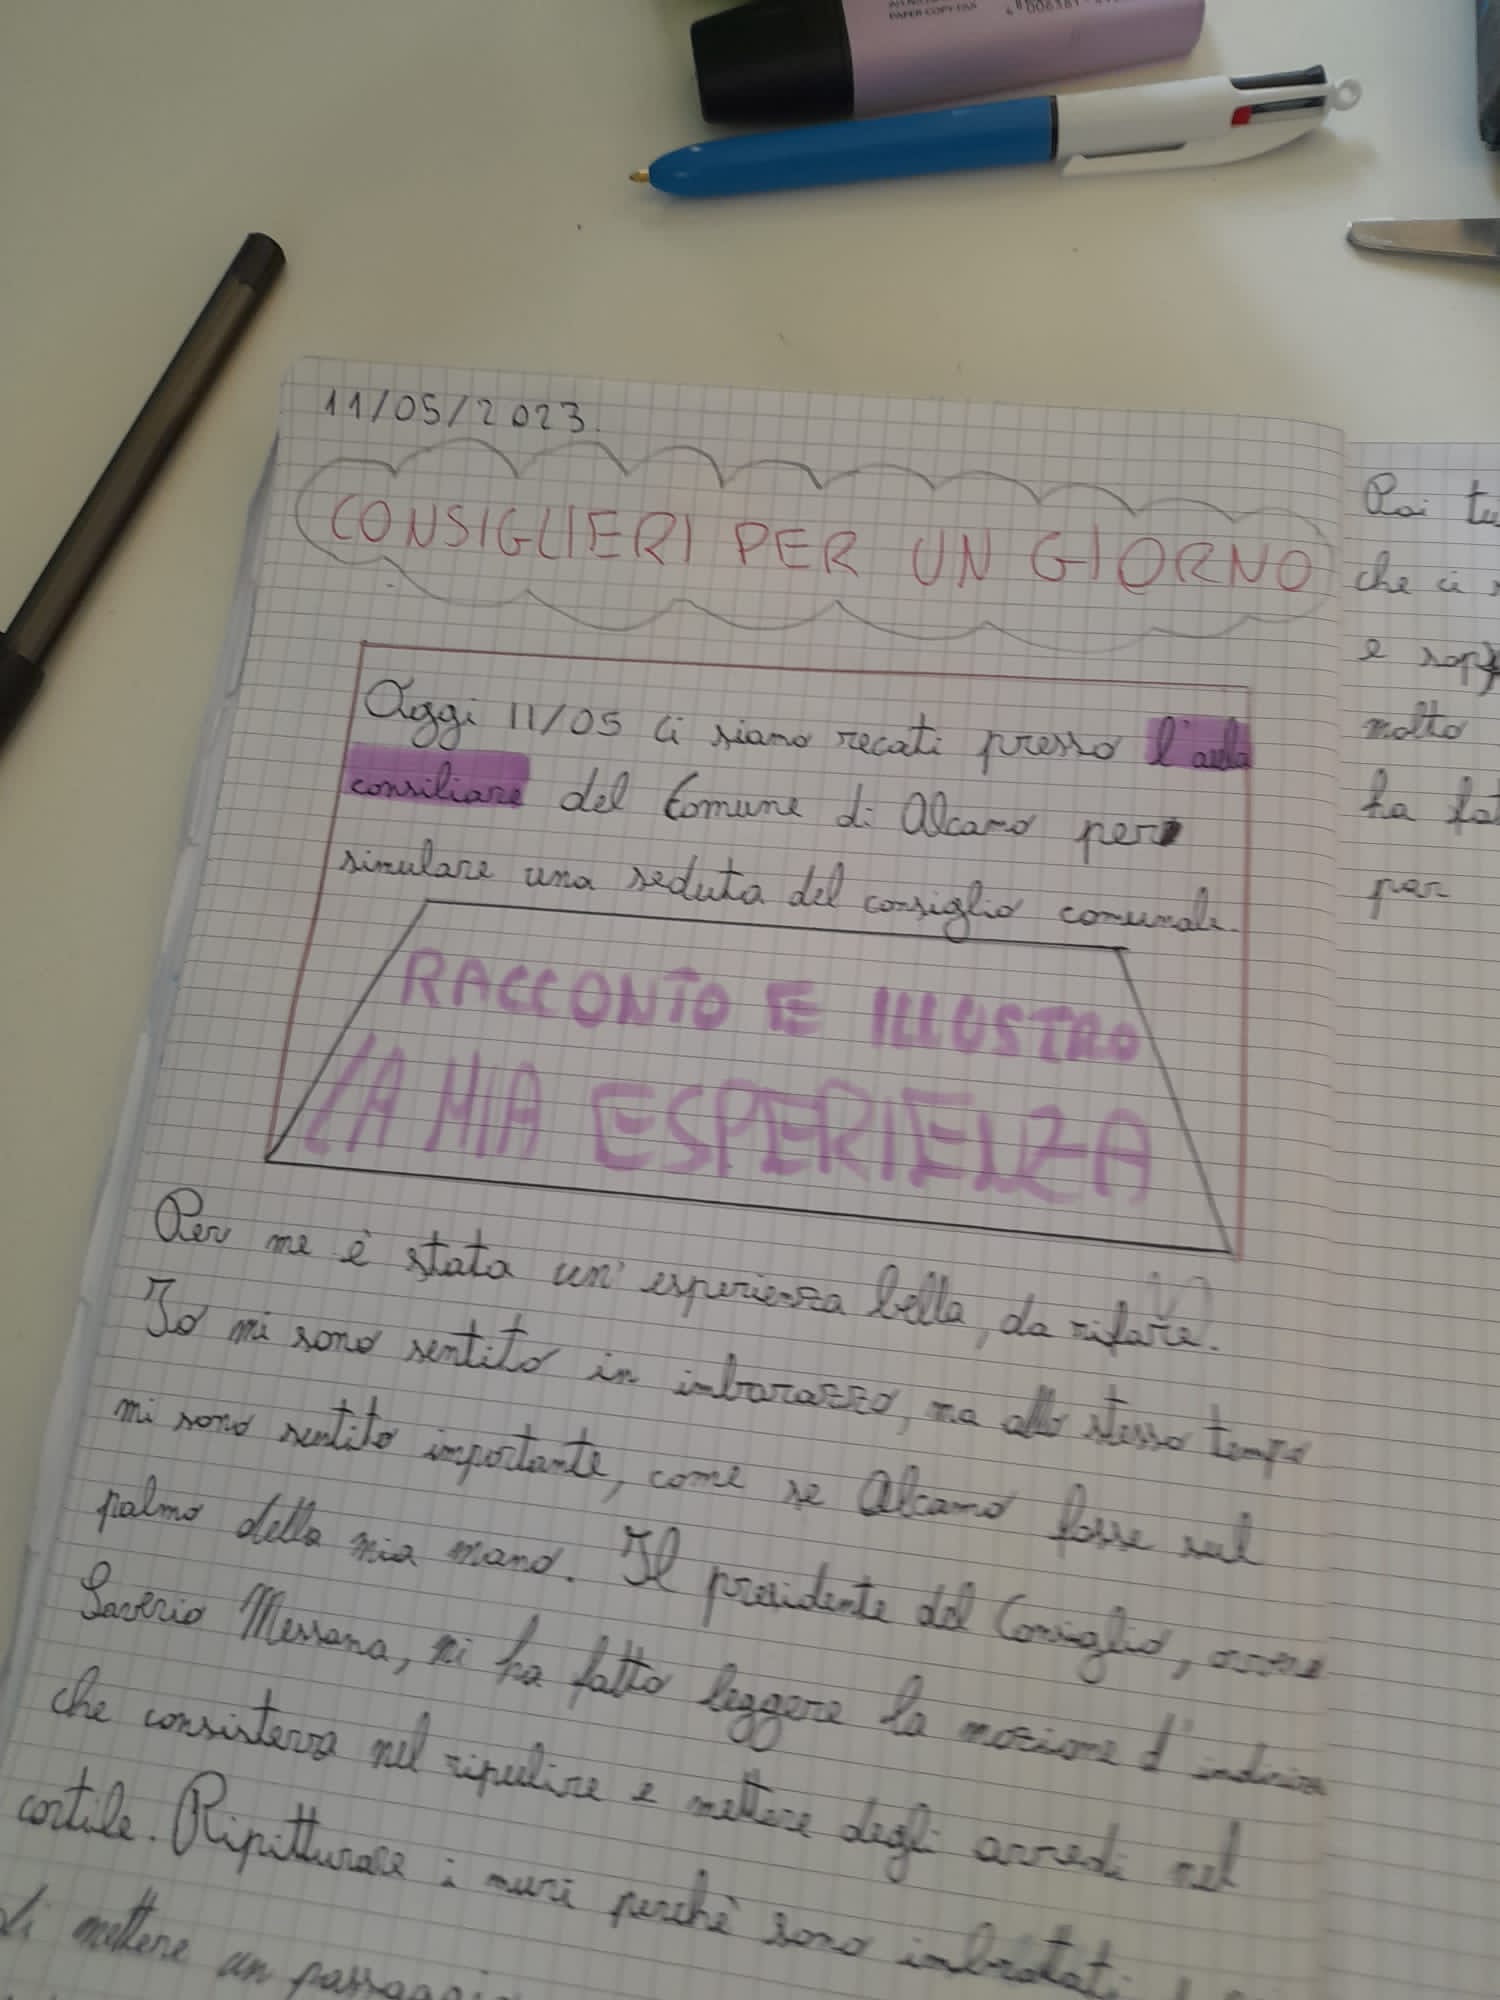 PAPER COPY FAX
11/05/2023.
CONSIGLIERI PER UN GIORNO
Oggi 11/05 ci siamo recati presso l'aula
consiliare del Comune di Alcamo per
simulare una seduta del consiglio comunale.
RACCONTO E ILLUSTRO
LA MIA ESPERIENZA
Per me è stata un'esperienza bella, da rifare.
Io mi sono sentito in imbarazzo, ma allo stesso tempo
mi sono sentito importante, come se Alcamo fosse sul
palmo della mia mano. Il presidente del Consiglio, ovvero
Saverio Messana, mi ha fatto leggere la mozione d'indirizzo
che consisteva nel ripulire e mettere degli arredi nel
cortile. Ripitturare i muri perchè sono imbrattati
di mettere un
Poi
che ci
e
molto
ha
per